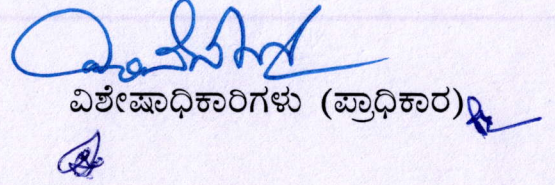 ವಿಶೇಷಾಧಿಕಾರಿಗಳು (ಪ್ರಾಧಿಕಾರ)